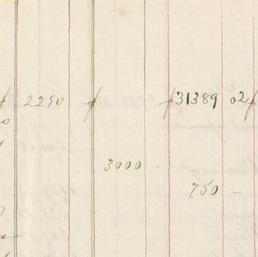 2250 31389 02
3000 -
750 -